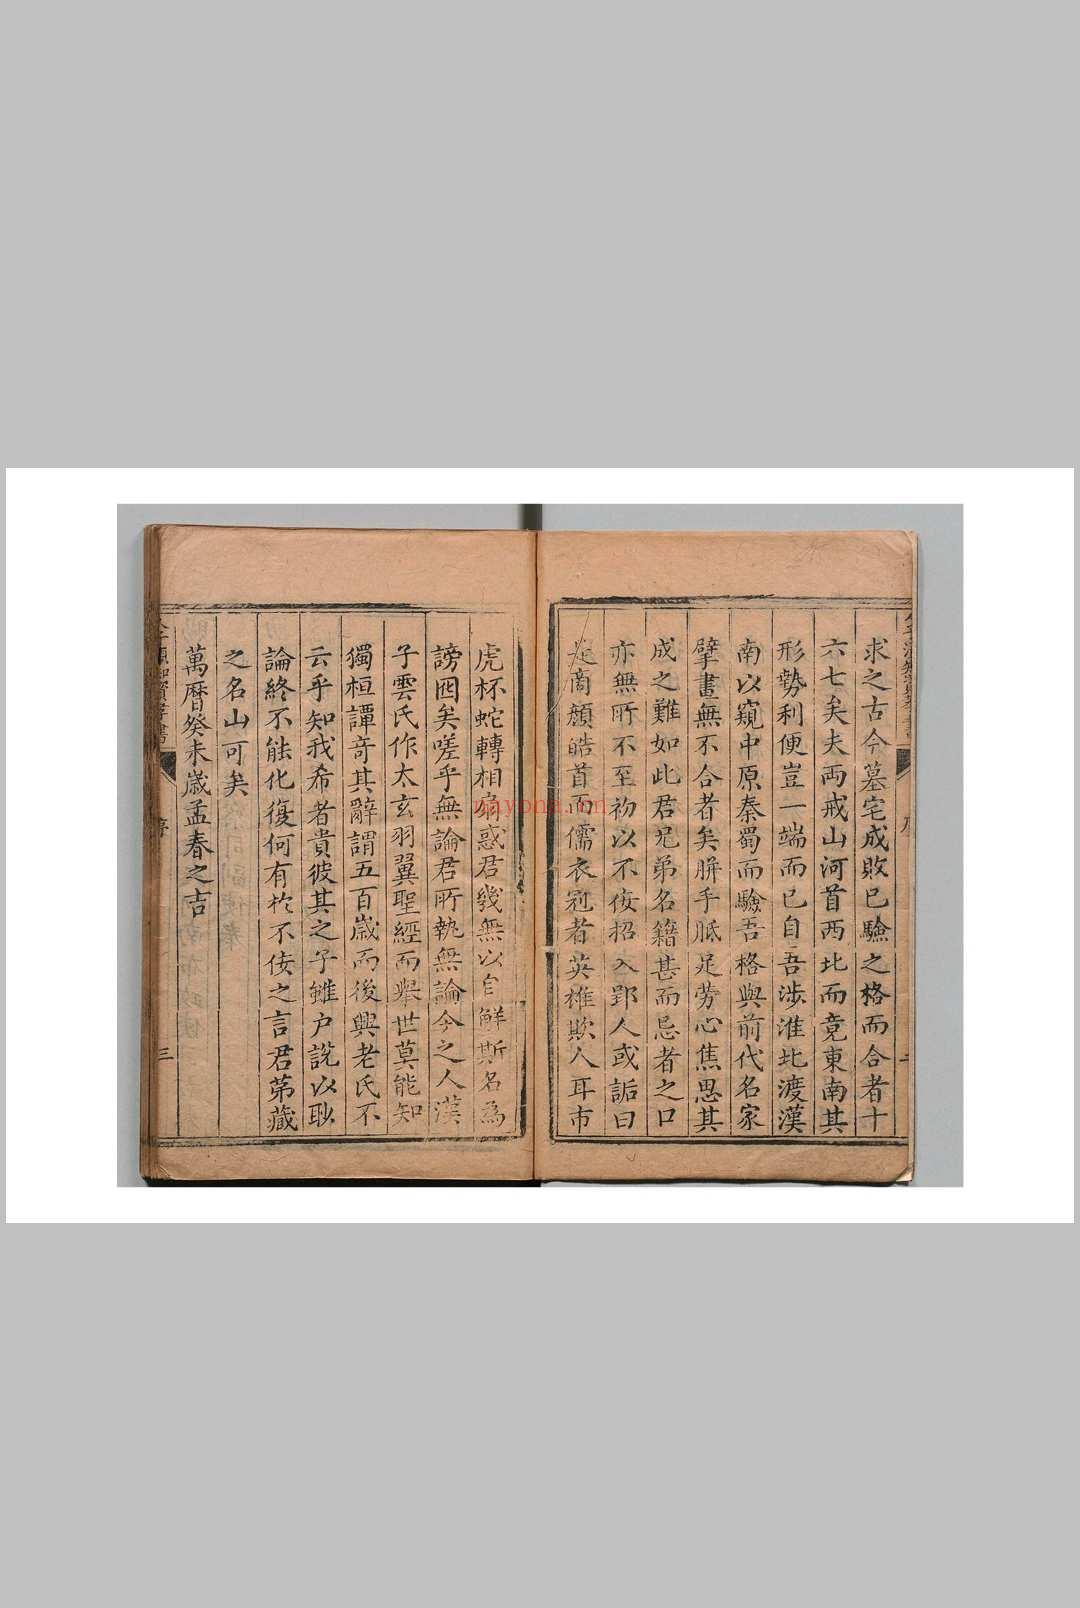 求之古今墓宅成敗已驗之格而合者十
六七矣夫両戒山河首西北而竟東南其
形勢利便豈一端而已自吾渉淮北渡漢
南以窺中原秦蜀而驗吾格與前代名家
擘畫無不合者矣胼手胝足勞心焦思其
成之難如此君兄弟名籍甚而忌者之口
亦無所不至初以不佞招入郢人或詬曰
是商顔皓首而儒衣冠者英雄欺人耳市
虎杯蛇轉相扇惑君幾無以自觧斯名為
謗囮矣嗟乎無論君所執無論今之人漢
子雲氏作太玄羽翼聖經而舉世莫能知
獨桓譚竒其辭謂五百歲而後興老氏不
云乎知我希者貴彼其之子雖户説以眇
論終不能化復何有於不佞之言君苐藏
之名山可矣
萬曆癸未歲孟春之吉
序
三
nayona.cn